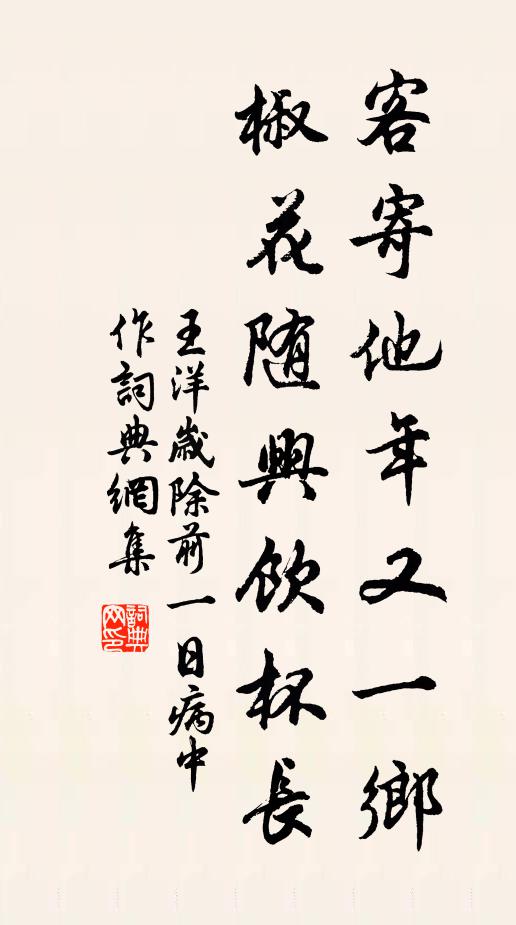 客寄他年又一鄉
椒花随興飲杯長
王洋歲除前一日病中
作詞典網集
詞典网印